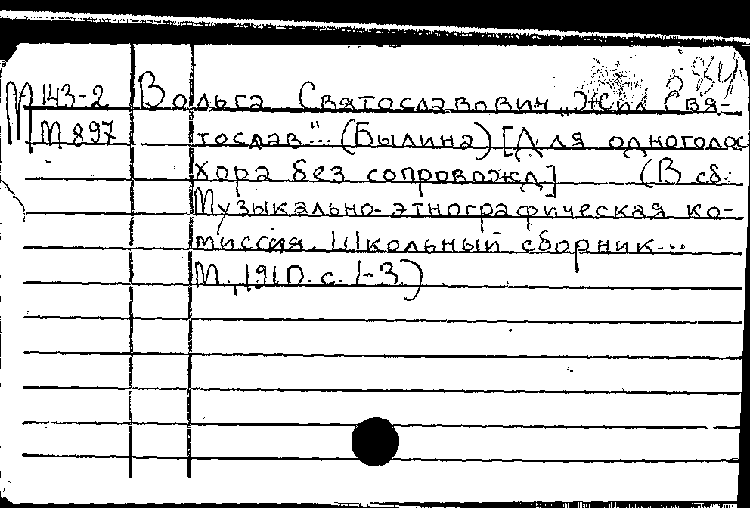 М 143-2 Вольга Святославович „Жил Свя-
М 897 тослав"... (Былина) [Для одноголос
хора без сопровожд] (В сб:
Музыкально-этнографическая ко-
миссия. Школьный сборник...
М., 191 с. 1-3.)